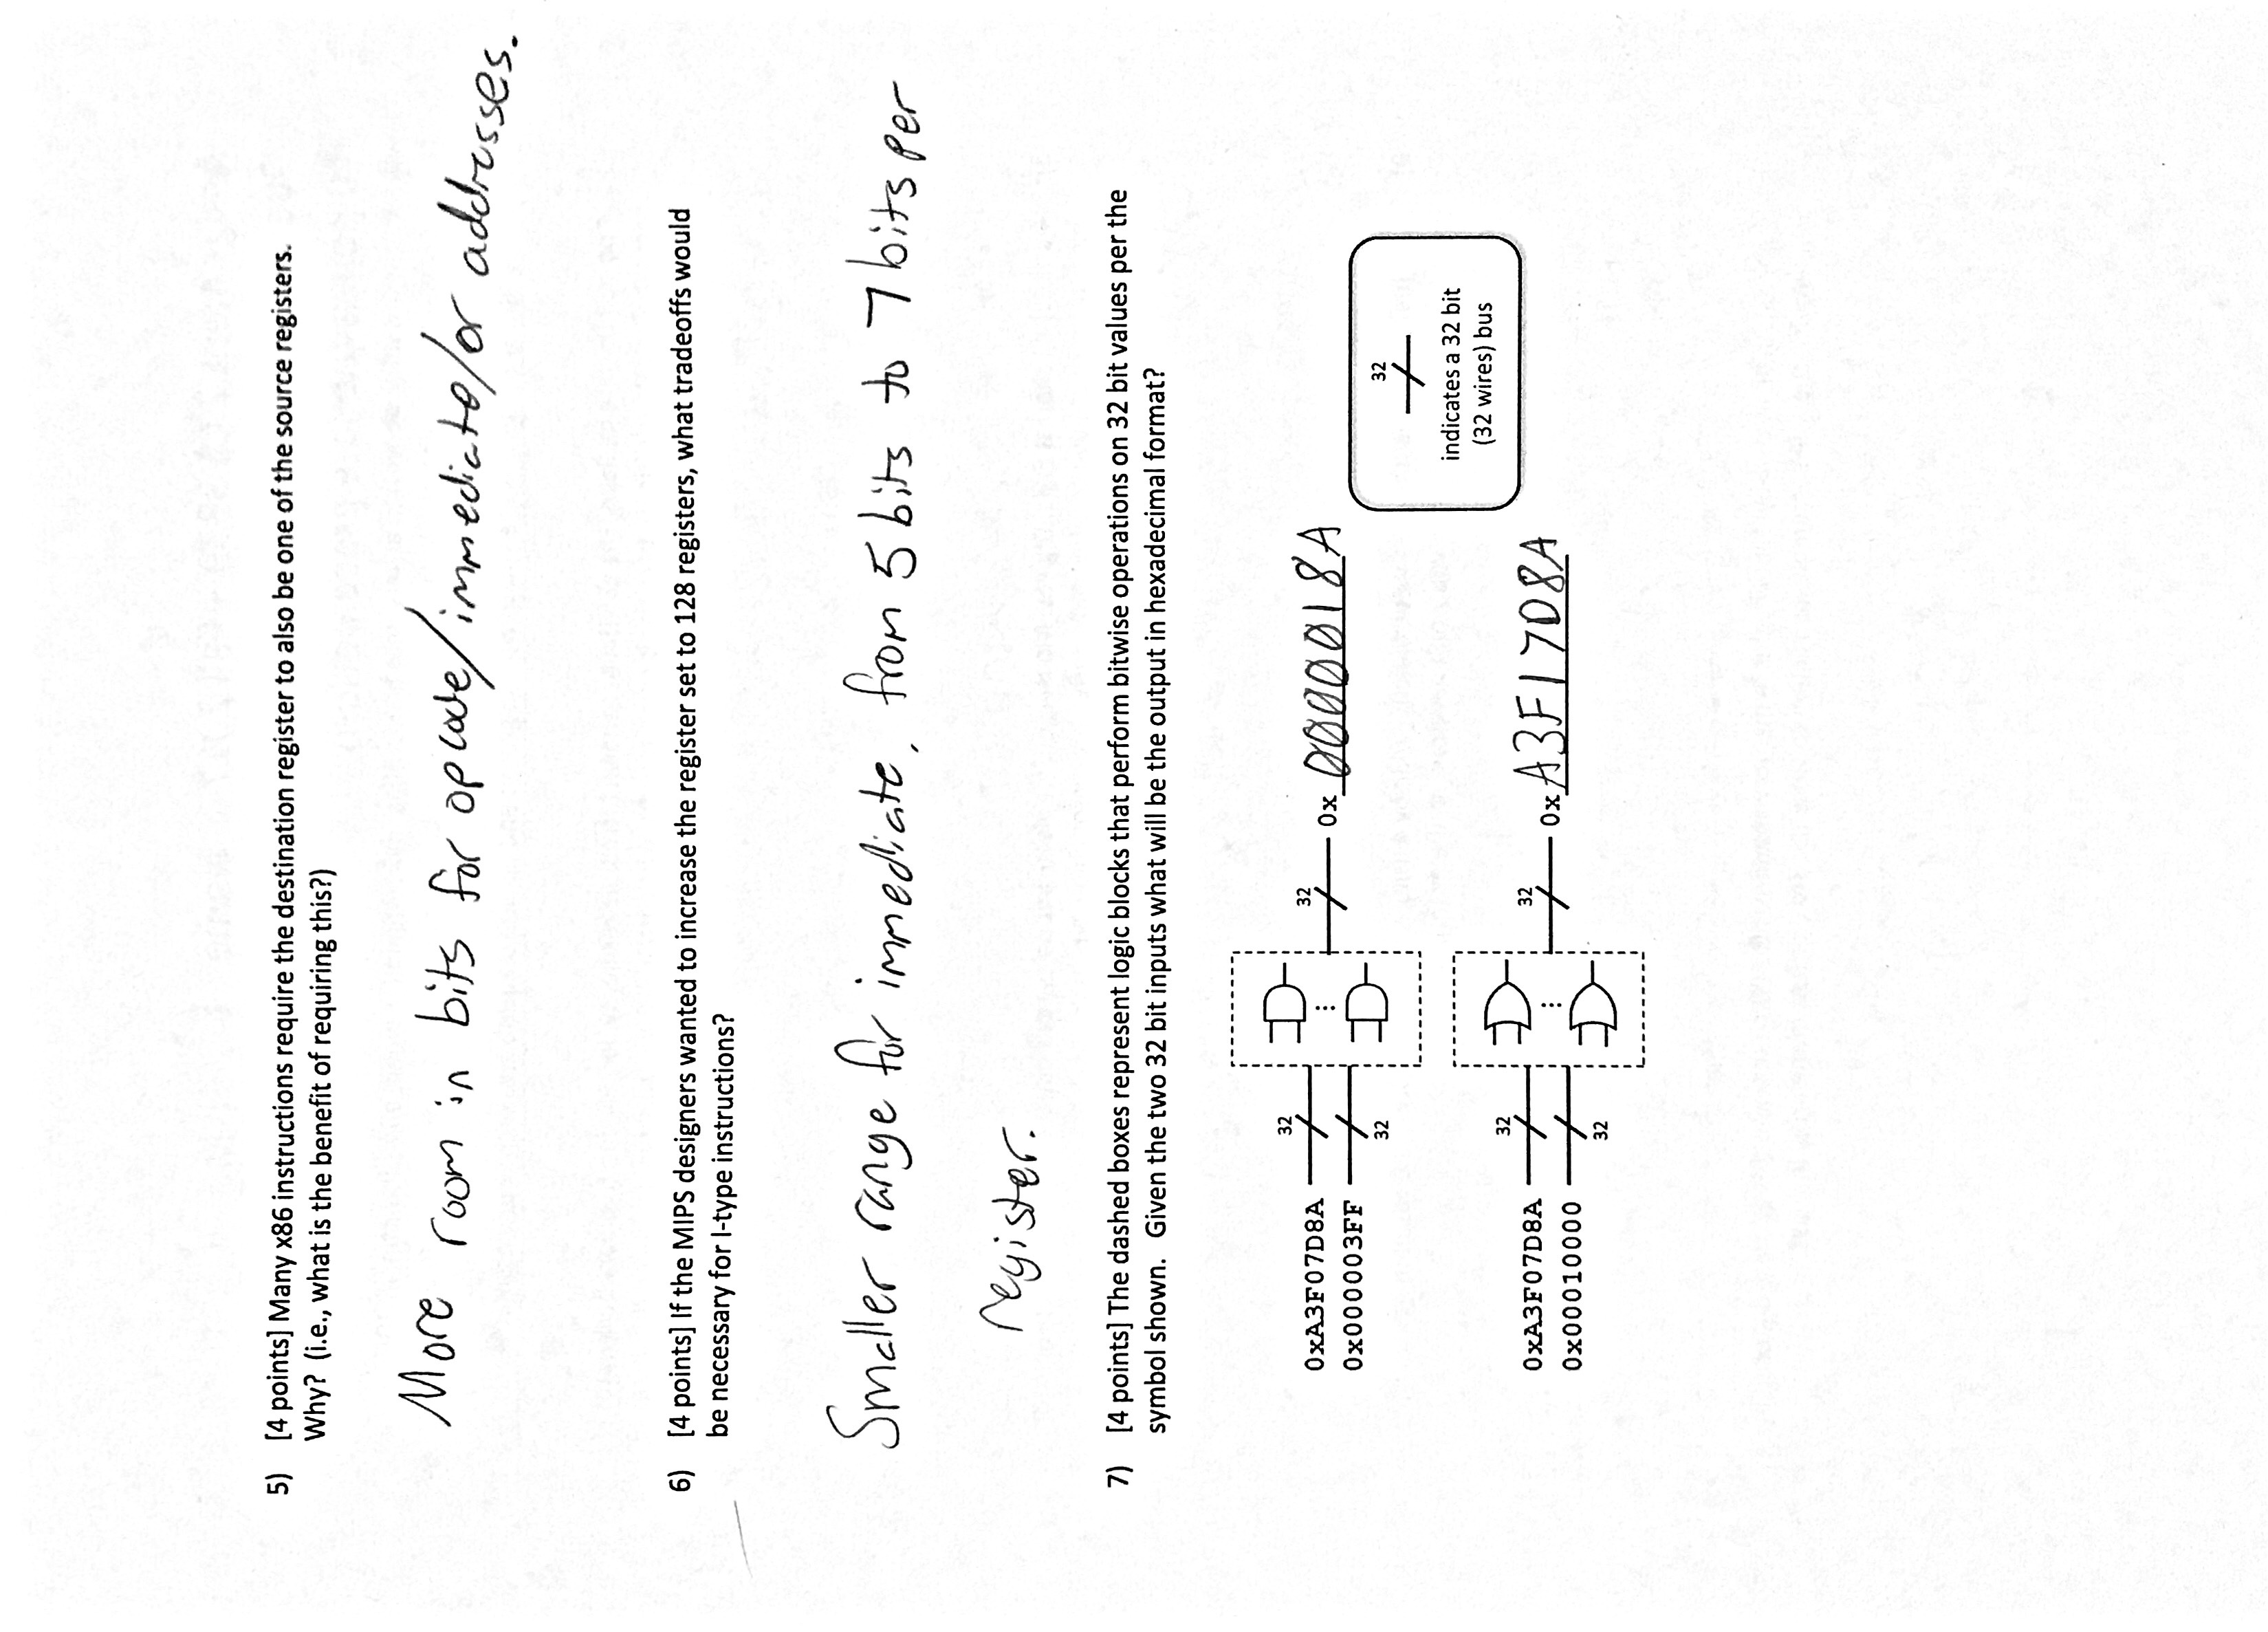 5) [4 points] Many x86 instructions require the destination register to also be one of the source registers.
Why? (i.e., what is the benefit of requiring this?)
More room in bits for opcode/immediate/or addresses.
6) [4 points] If the MIPS designers wanted to increase the register set to 128 registers, what tradeoffs would
be necessary for I-type instructions?
Smaller range for immediate, from 5 bits to 7 bits per
register.
7) [4 points] The dashed boxes represent logic blocks that perform bitwise operations on 32 bit values per the
symbol shown. Given the two 32 bit inputs what will be the output in hexadecimal format?
32
0xA3F07D8A
0x000003FF
32
32
0x 0000018A
32
0xA3F07D8A
0x00010000
32
32
0x A3F17D8A
32
indicates a 32 bit
(32 wires) bus